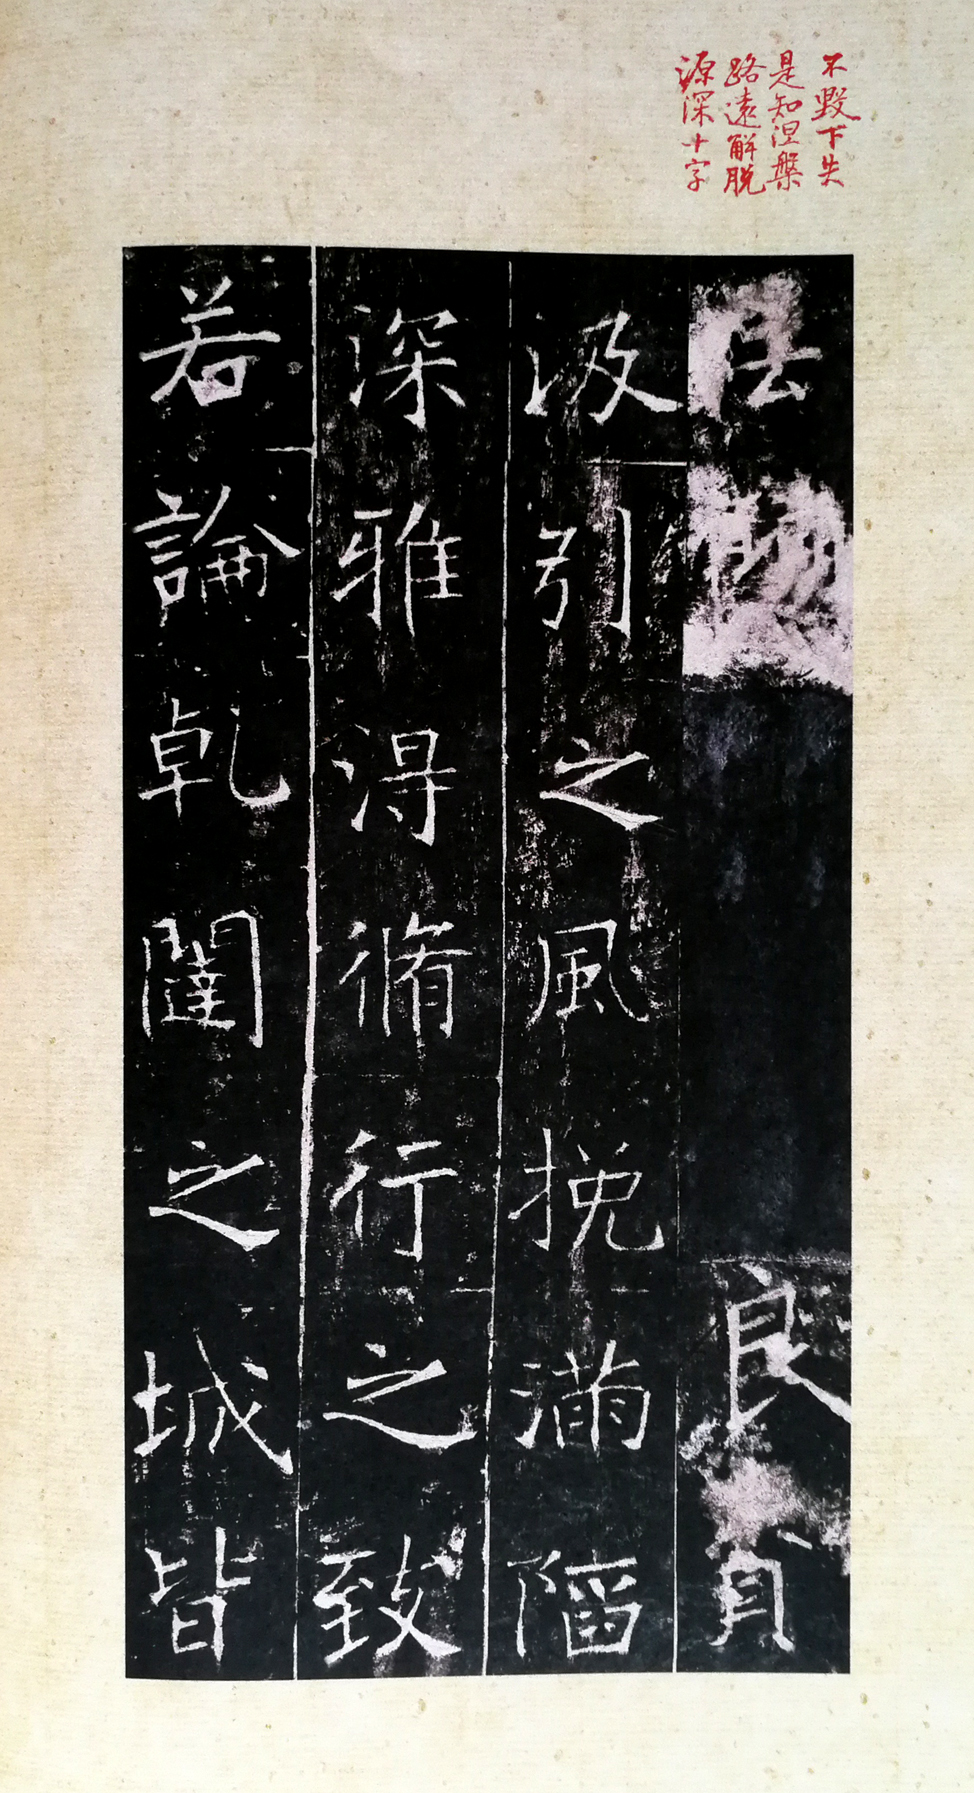 不毀下失
是知涅槃
路遠解脱
源深十字
良
汲引之風挽滿陷
深雅得脩行之致
若論乾闥之城皆